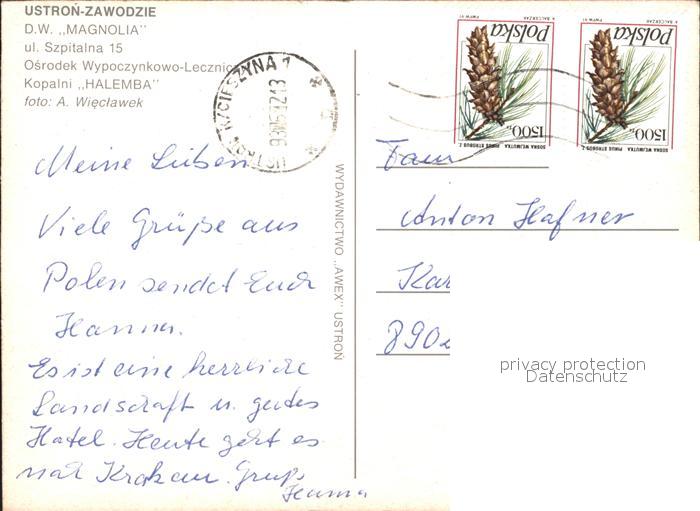 USTROŃ-ZAWODZIE
D.W. „MAGNOLIA"
ul. Szpitalna 15
Ośrodek Wypoczynkowo-Lecznic
Kopalni „HALEMBA"
foto: A. Więcławek
Meine Lieben
Viele Grüße aus
Polen sendet Euch
Hanna.
Es ist eine herrliche
Landschaft u. gutes
Hotel. Heute geht es
nach Krakau. Gruß
Hanna
WYDAWNICTWO „AWEX" USTROŃ
PWPW 91
A. BALCERZAK
Polska
1500 zł
SOSNA WEJMUTKA PINUS STROBUS L.
PWPW 91
A. BALCERZAK
Polska
1500 zł
SOSNA WEJMUTKA PINUS STROBUS L.
Fam
Anton Hafner
Kar
890
privacy protection
Datenschutz